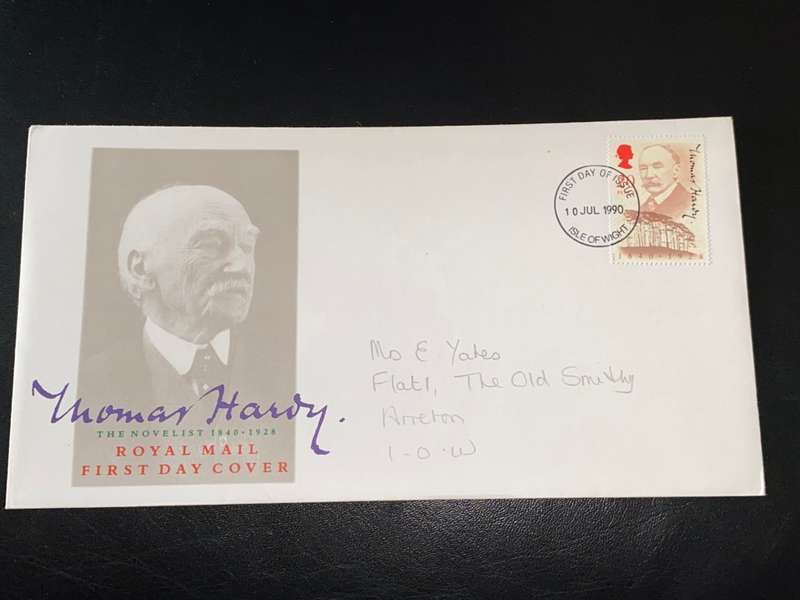 FIRST DAY OF ISSUE
10 JUL 1990
ISLE OF WIGHT
Thomas Hardy.
Ms E Yates
Flat 1, The Old Smithy
Arreton
I-O-W
Thomas Hardy.
THE NOVELIST 1840-1928
ROYAL MAIL
FIRST DAY COVER